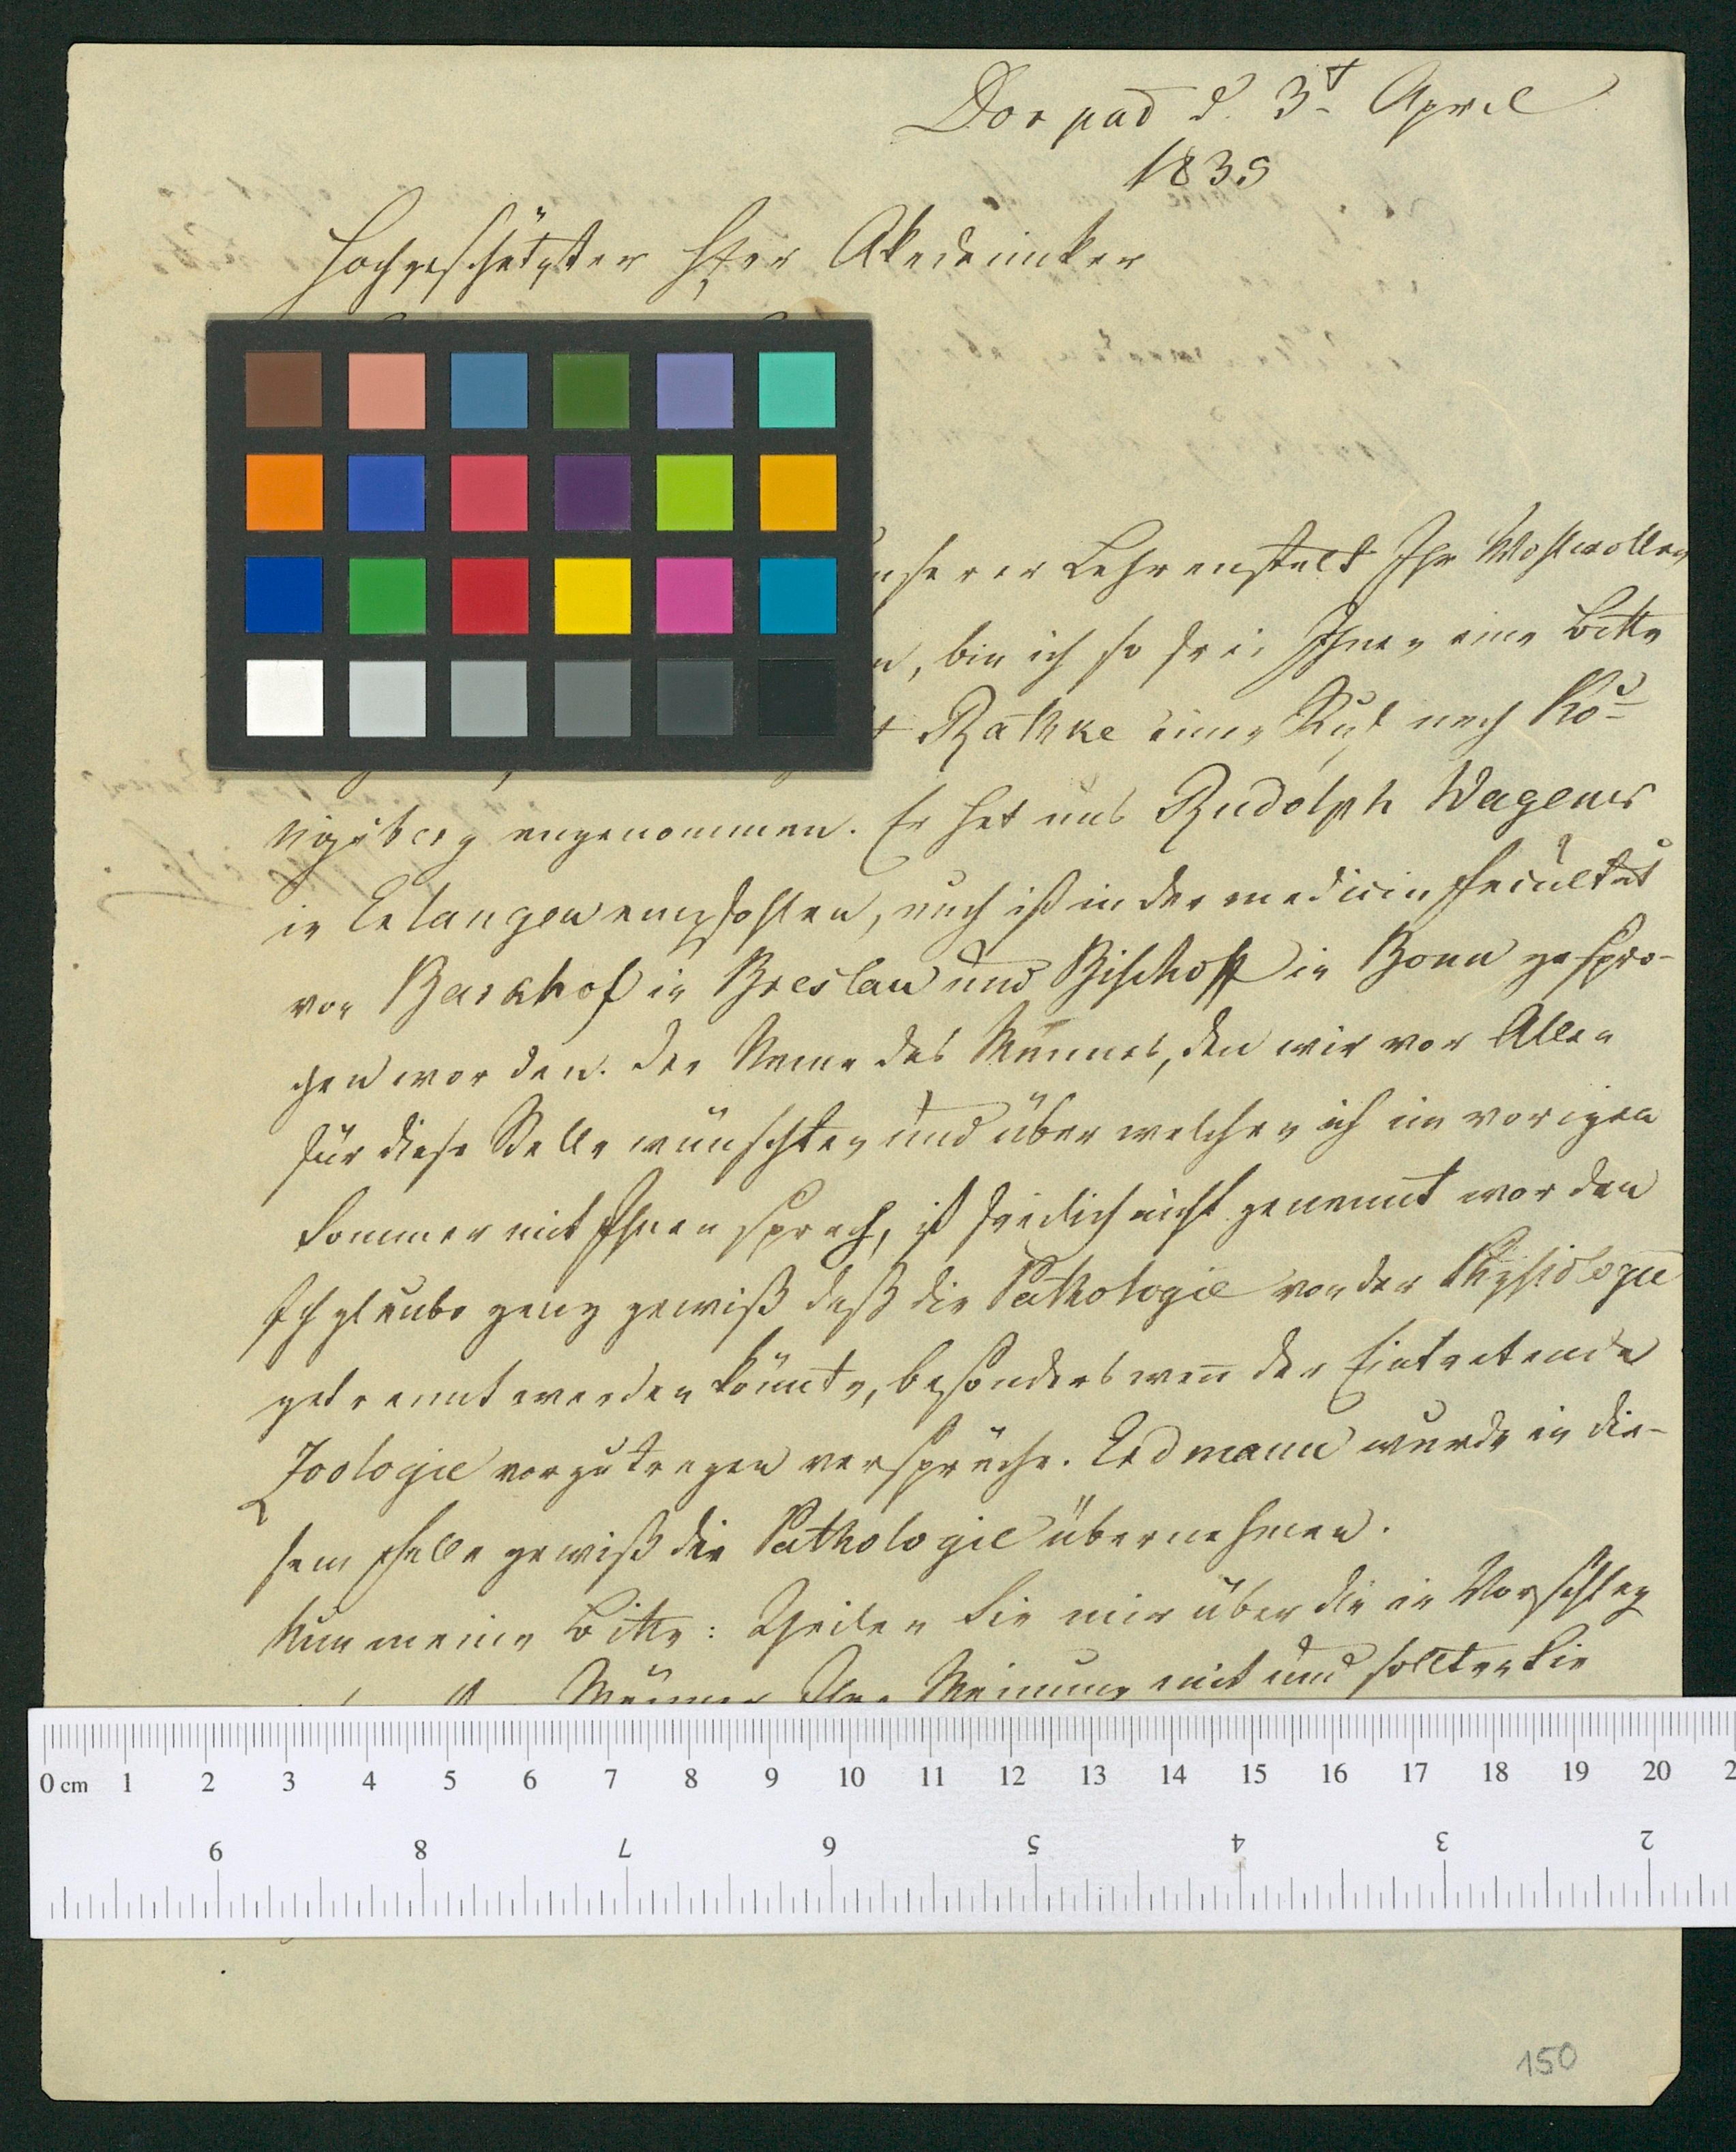 Dorpad d. 3t April
1835
Hochgeschätzter Herr Akademiker
unserer Lehrenstalt Ihr Wohlwollen
, bin ich so frei Ihnen eine Bitte
Rathke einen Ruf nach Kö-
nigsberg angenommen. Er hat uns Rudolph Wagener
in Erlangen empfohlen, auch ist in der medicin Facultät
von Barkhof in Breslau und Bischoff in Bonn gespro-
chen worden. Der Name des Mannes, den wir vor Allen
für diese Stelle wünschten und über welchen ich im vorigen
Sommer mit Ihnen sprach, ist freilich nicht genannt worden
Ich glaube ganz gewiß daß die Pathologie von der Physiologie
getrennt werden könnte, besonders wen der Eintretende
Zoologie vorzutragen verspräche. Erdmann wurde in die-
sem Falle gewiß die Pathologie übernehmen.
Nun meine Bitte: Theilen Sie mir über die in Vorschlag
Männer Ihre Meinung mit und sollten Sie
0 cm 1 2 3 4 5 6 7 8 9 10 11 12 13 14 15 16 17 18 19 20 2
9 8 7 6 5 4 3 2
150